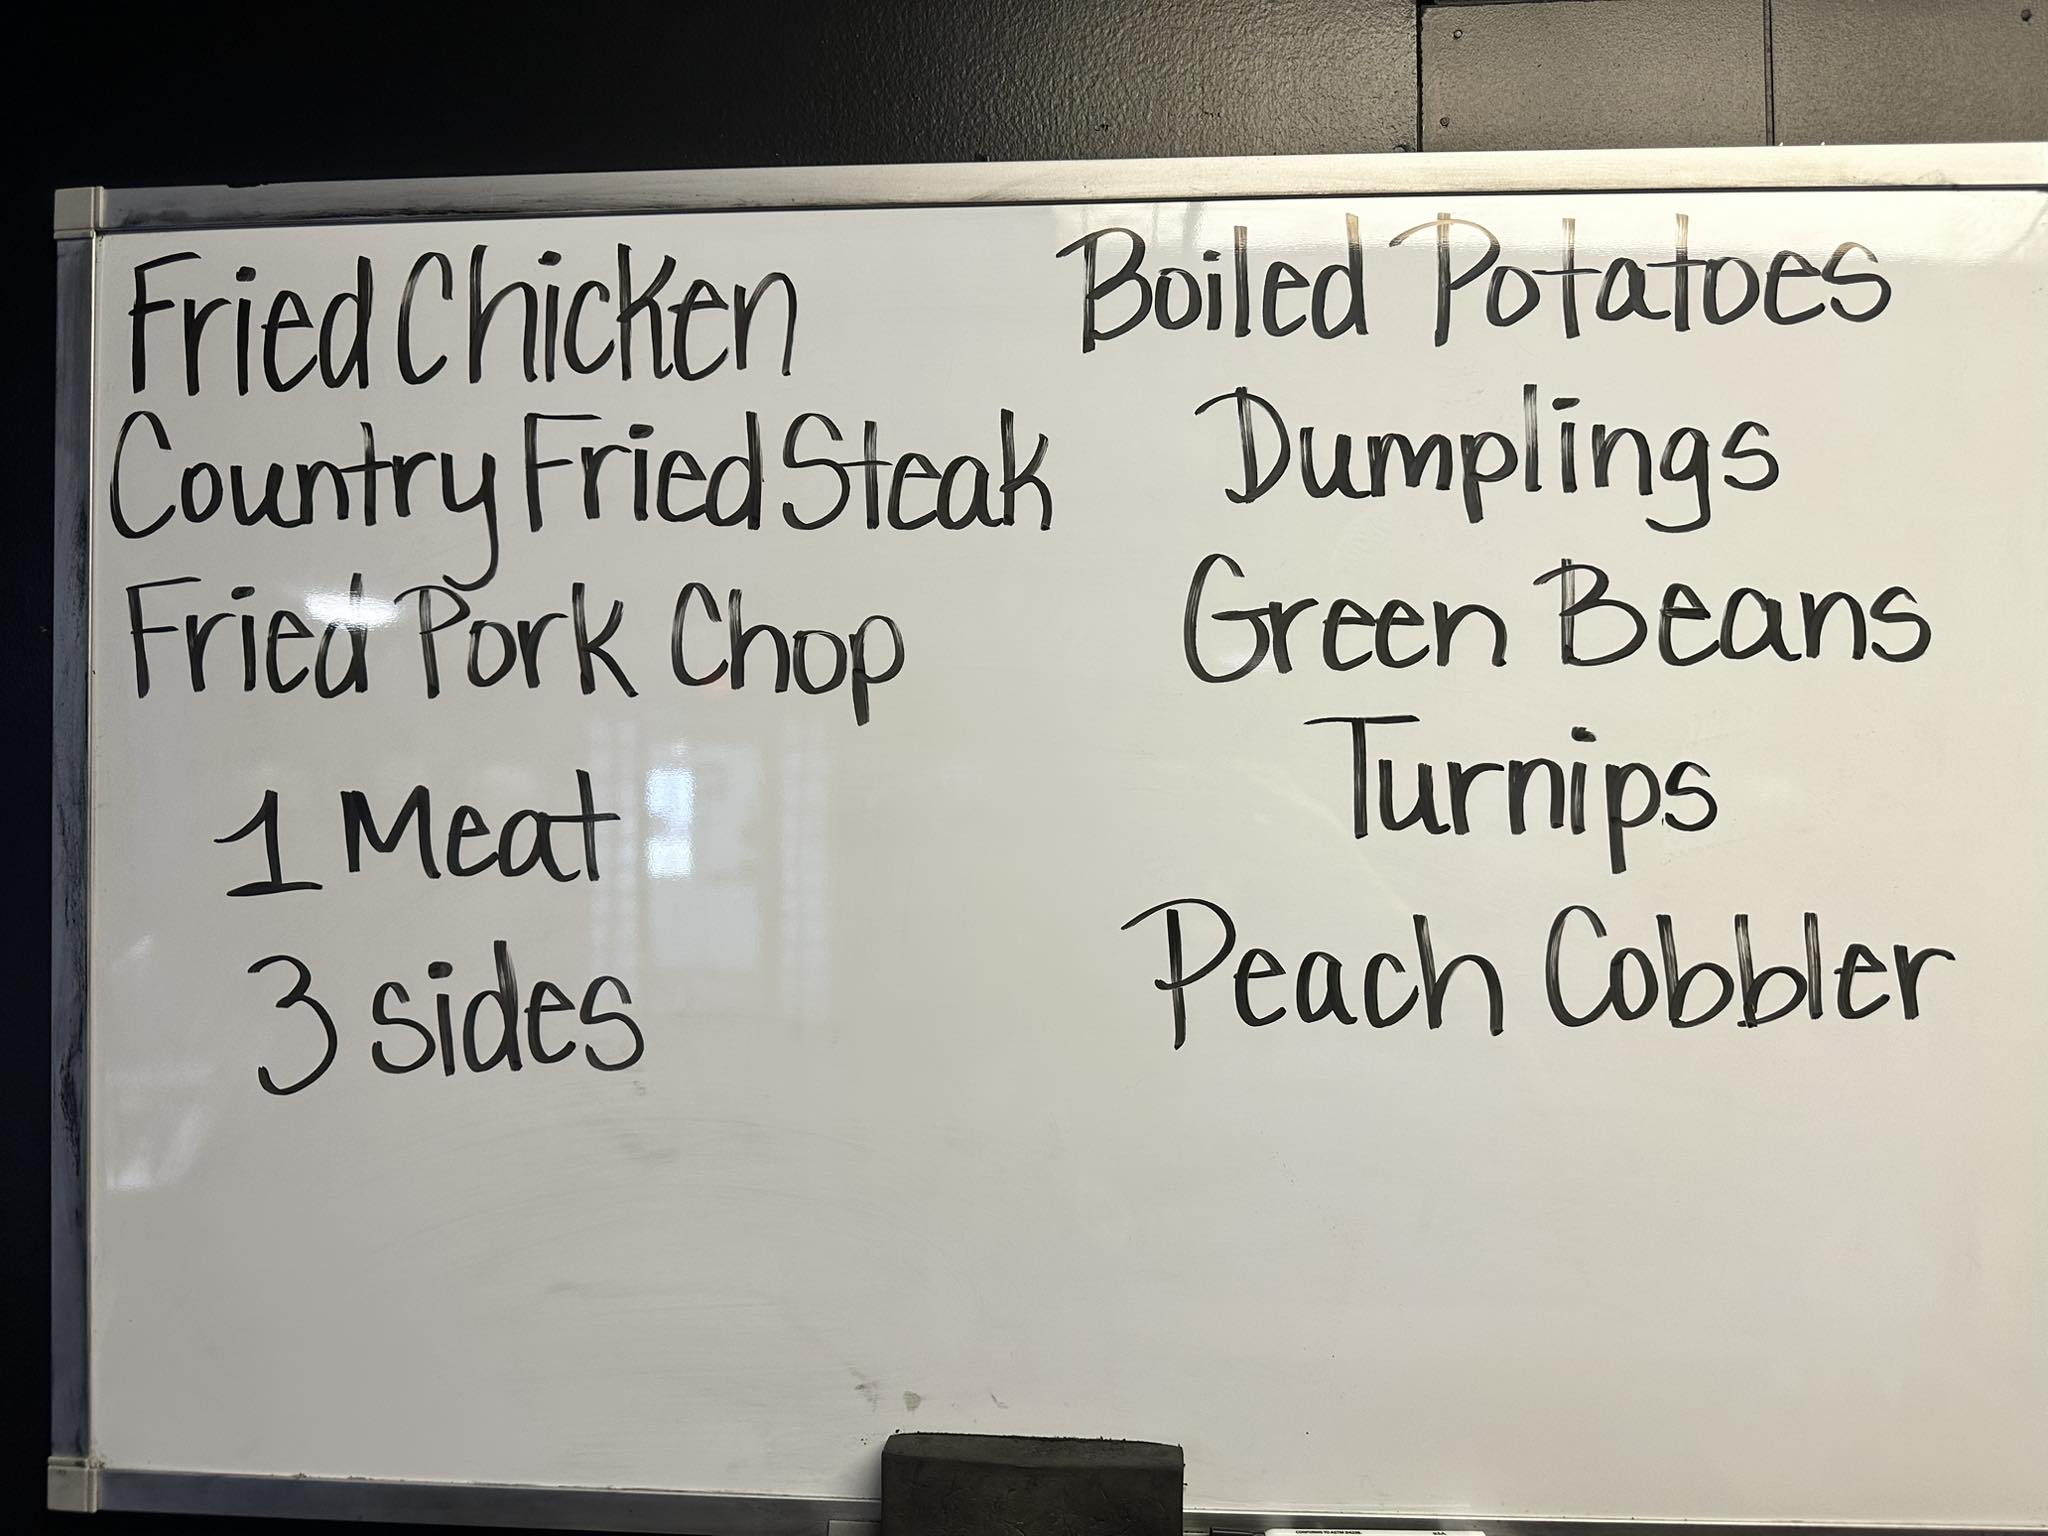 Fried Chicken
Country Fried Steak
Fried Pork Chop
1 Meat
3 sides
Boiled Potatoes
Dumplings
Green Beans
Turnips
Peach Cobbler